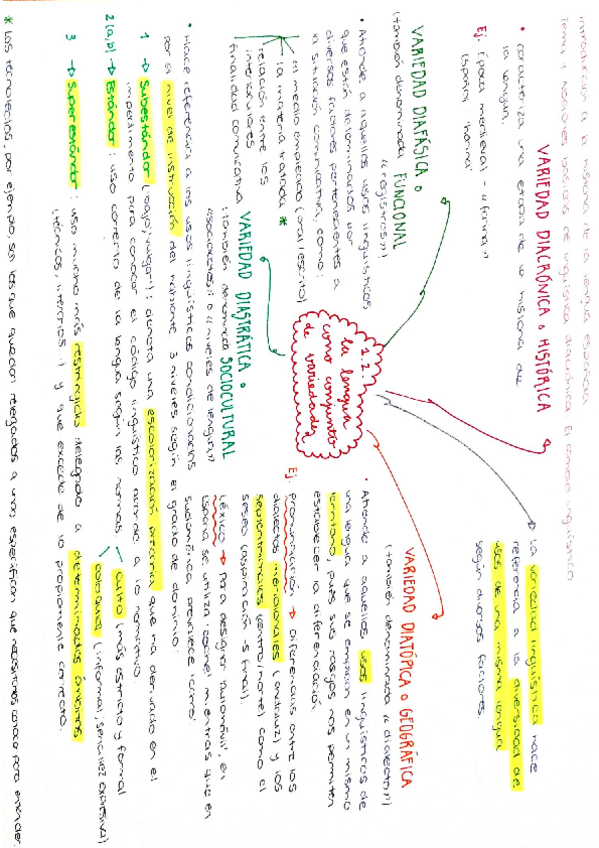 Introducción a la historia de la lengua española
Tema 1. Nociones básicas de lingüística diacrónica. El cambio lingüístico
VARIEDAD DIACRÓNICA o HISTÓRICA
• Caracteriza una etapa de la historia de
la lengua.
Ej. Época medieval - "fforma"
Español "horma"
→ La variación lingüística hace
referencia a la diversidad de
usos de una misma lengua
según diversos factores.
1.2.
la lengua
como conjunto
de variedades
VARIEDAD DIAFÁSICA o
FUNCIONAL
(también denominada
"registros")
• Atiende a aquellos usos lingüísticos
que están determinados por
diversos factores pertenecientes a
la situación comunicativa, como:
el medio empleado (oral/escrito)
la materia tratada *
relación entre los
interlocutores
finalidad comunicativa
VARIEDAD DIATÓPICA o GEOGRÁFICA
(también denominada "dialecto")
• Atiende a aquellos usos lingüísticos de
una lengua que se emplean en un mismo
territorio, pues sus rasgos nos permiten
establecer la diferenciación.
Ej. pronunciación → diferencias entre los
dialectos meridionales (andaluz) y los
septentrionales (centro/norte) como el
seseo (aspiración -s final).
Léxico → Para designar 'automóvil', en
España se utiliza coche mientras que en
Sudamérica prevalece 'carro'
VARIEDAD DIASTRÁTICA o
SOCIOCULTURAL
(también denominada
"sociolectos" o "niveles de lengua")
• Hace referencia a los usos lingüísticos condicionados
por el nivel de instrucción del hablante. 3 niveles según el grado de dominio:
1 → Subestándar (bajo/vulgar): denota una escolarización precaria que ha derivado en el
impedimento para conocer el código lingüístico acorde a lo normativo
2 (a,b) → Estándar: uso correcto de la lengua según las normas
culto (más estricto y formal
coloquial (informal, sencillez expresiva)
3 → Superestándar: uso mucho más restringido relegado a determinados ámbitos
(técnicos, literarios...) y que excede de lo propiamente correcto.
* Las tecnolectos, por ejemplo, son los que quedan relegados a usos específicos que necesitamos conocer para entender.